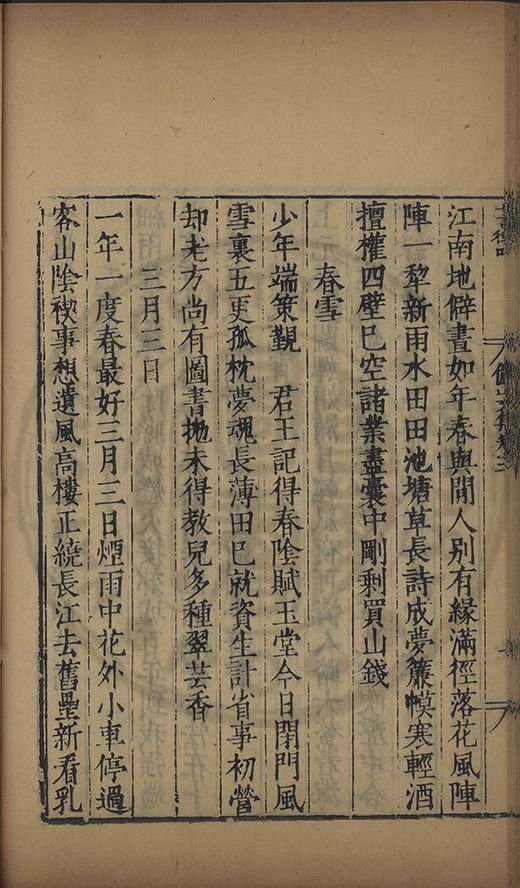 江南地僻晝如年春與閒人别有緣滿徑落花風陣
陣一犁新雨水田田池塘草長詩成夢簾幙寒輕酒
擅權四壁已空諸業盡囊中剛剩買山錢
春雪
少年端策覲 君王記得春陰賦玉堂今日閉門風
雪裏五更孤枕夢魂長薄田已就資生計省事初營
却老方尚有圖書抛未得教兒多種翠芸香
三月三日
一年一度春最好三月三日煙雨中花外小車停過
客山陰禊事想遺風高樓正繞長江去舊壘新看乳